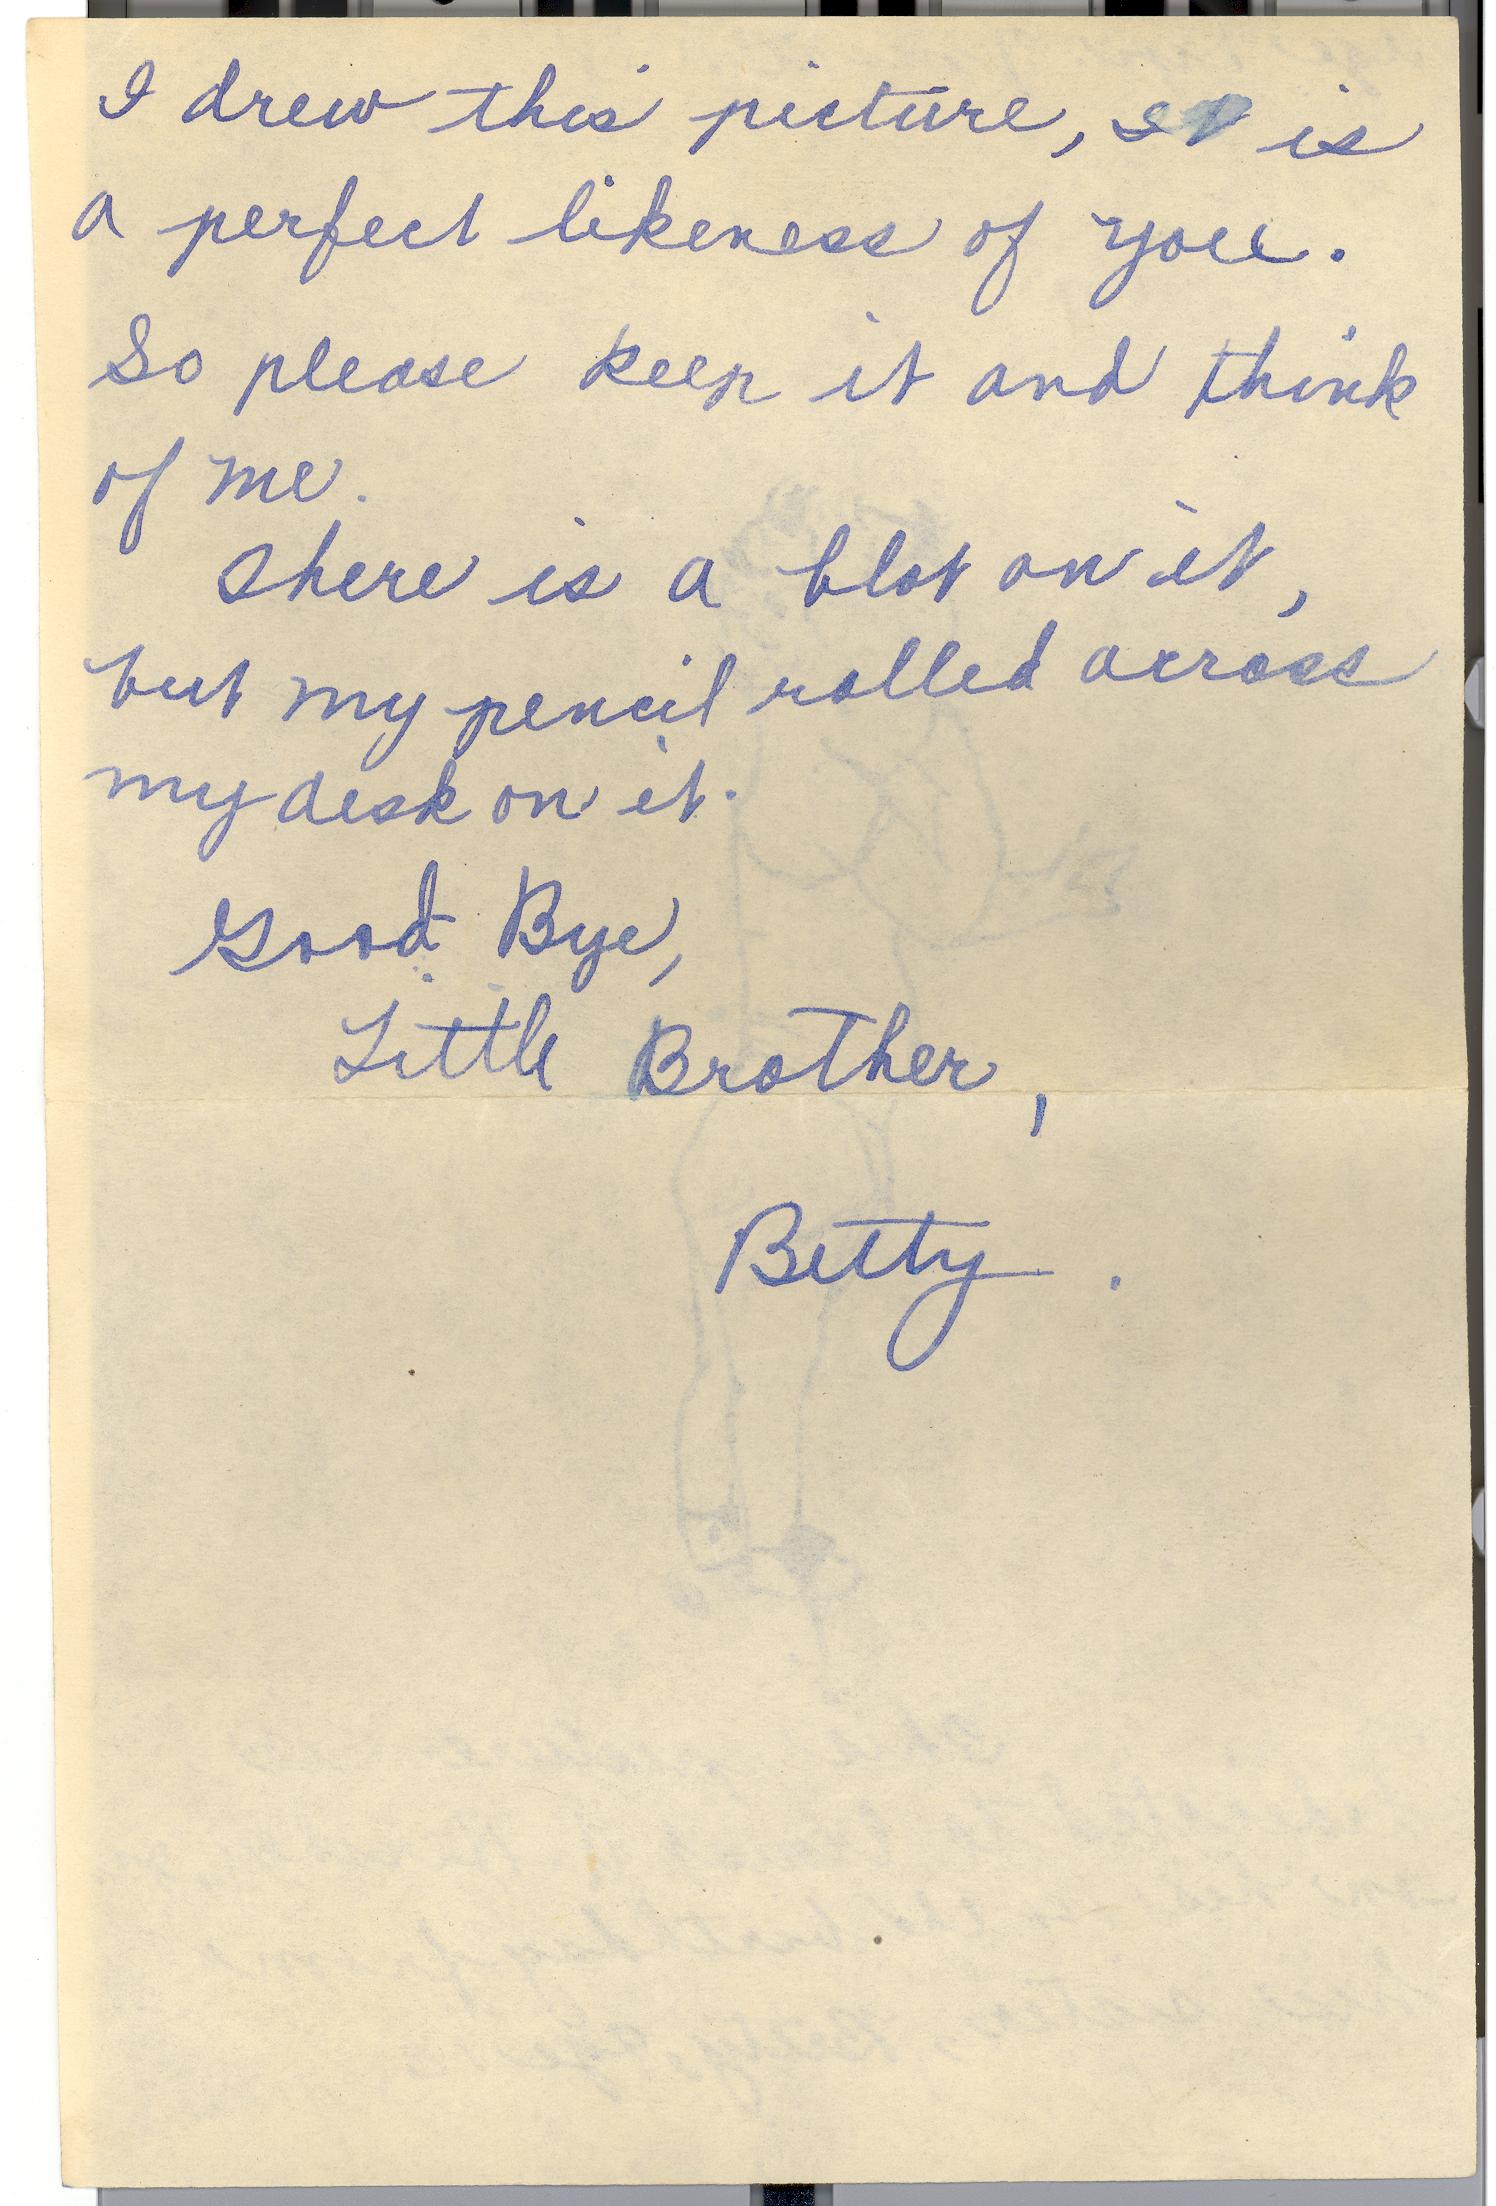 I drew this picture, it is
a perfect likeness of you.
So please keep it and think
of me.
There is a blot on it,
but my pencil rolled across
my desk on it.
Good Bye,
Little Brother,
Betty.